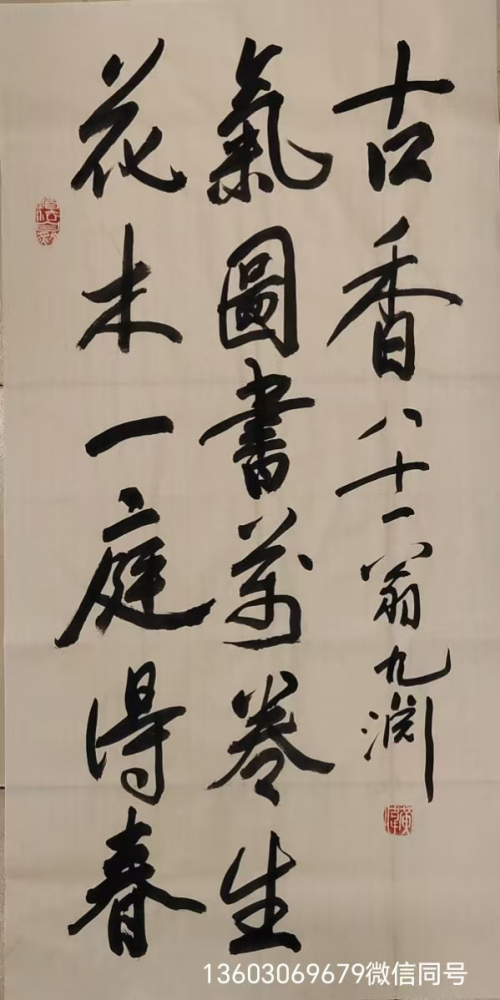 花木一庭得春
氣圖書萬卷生
古香八十一翁九渊
13603069679微信同号